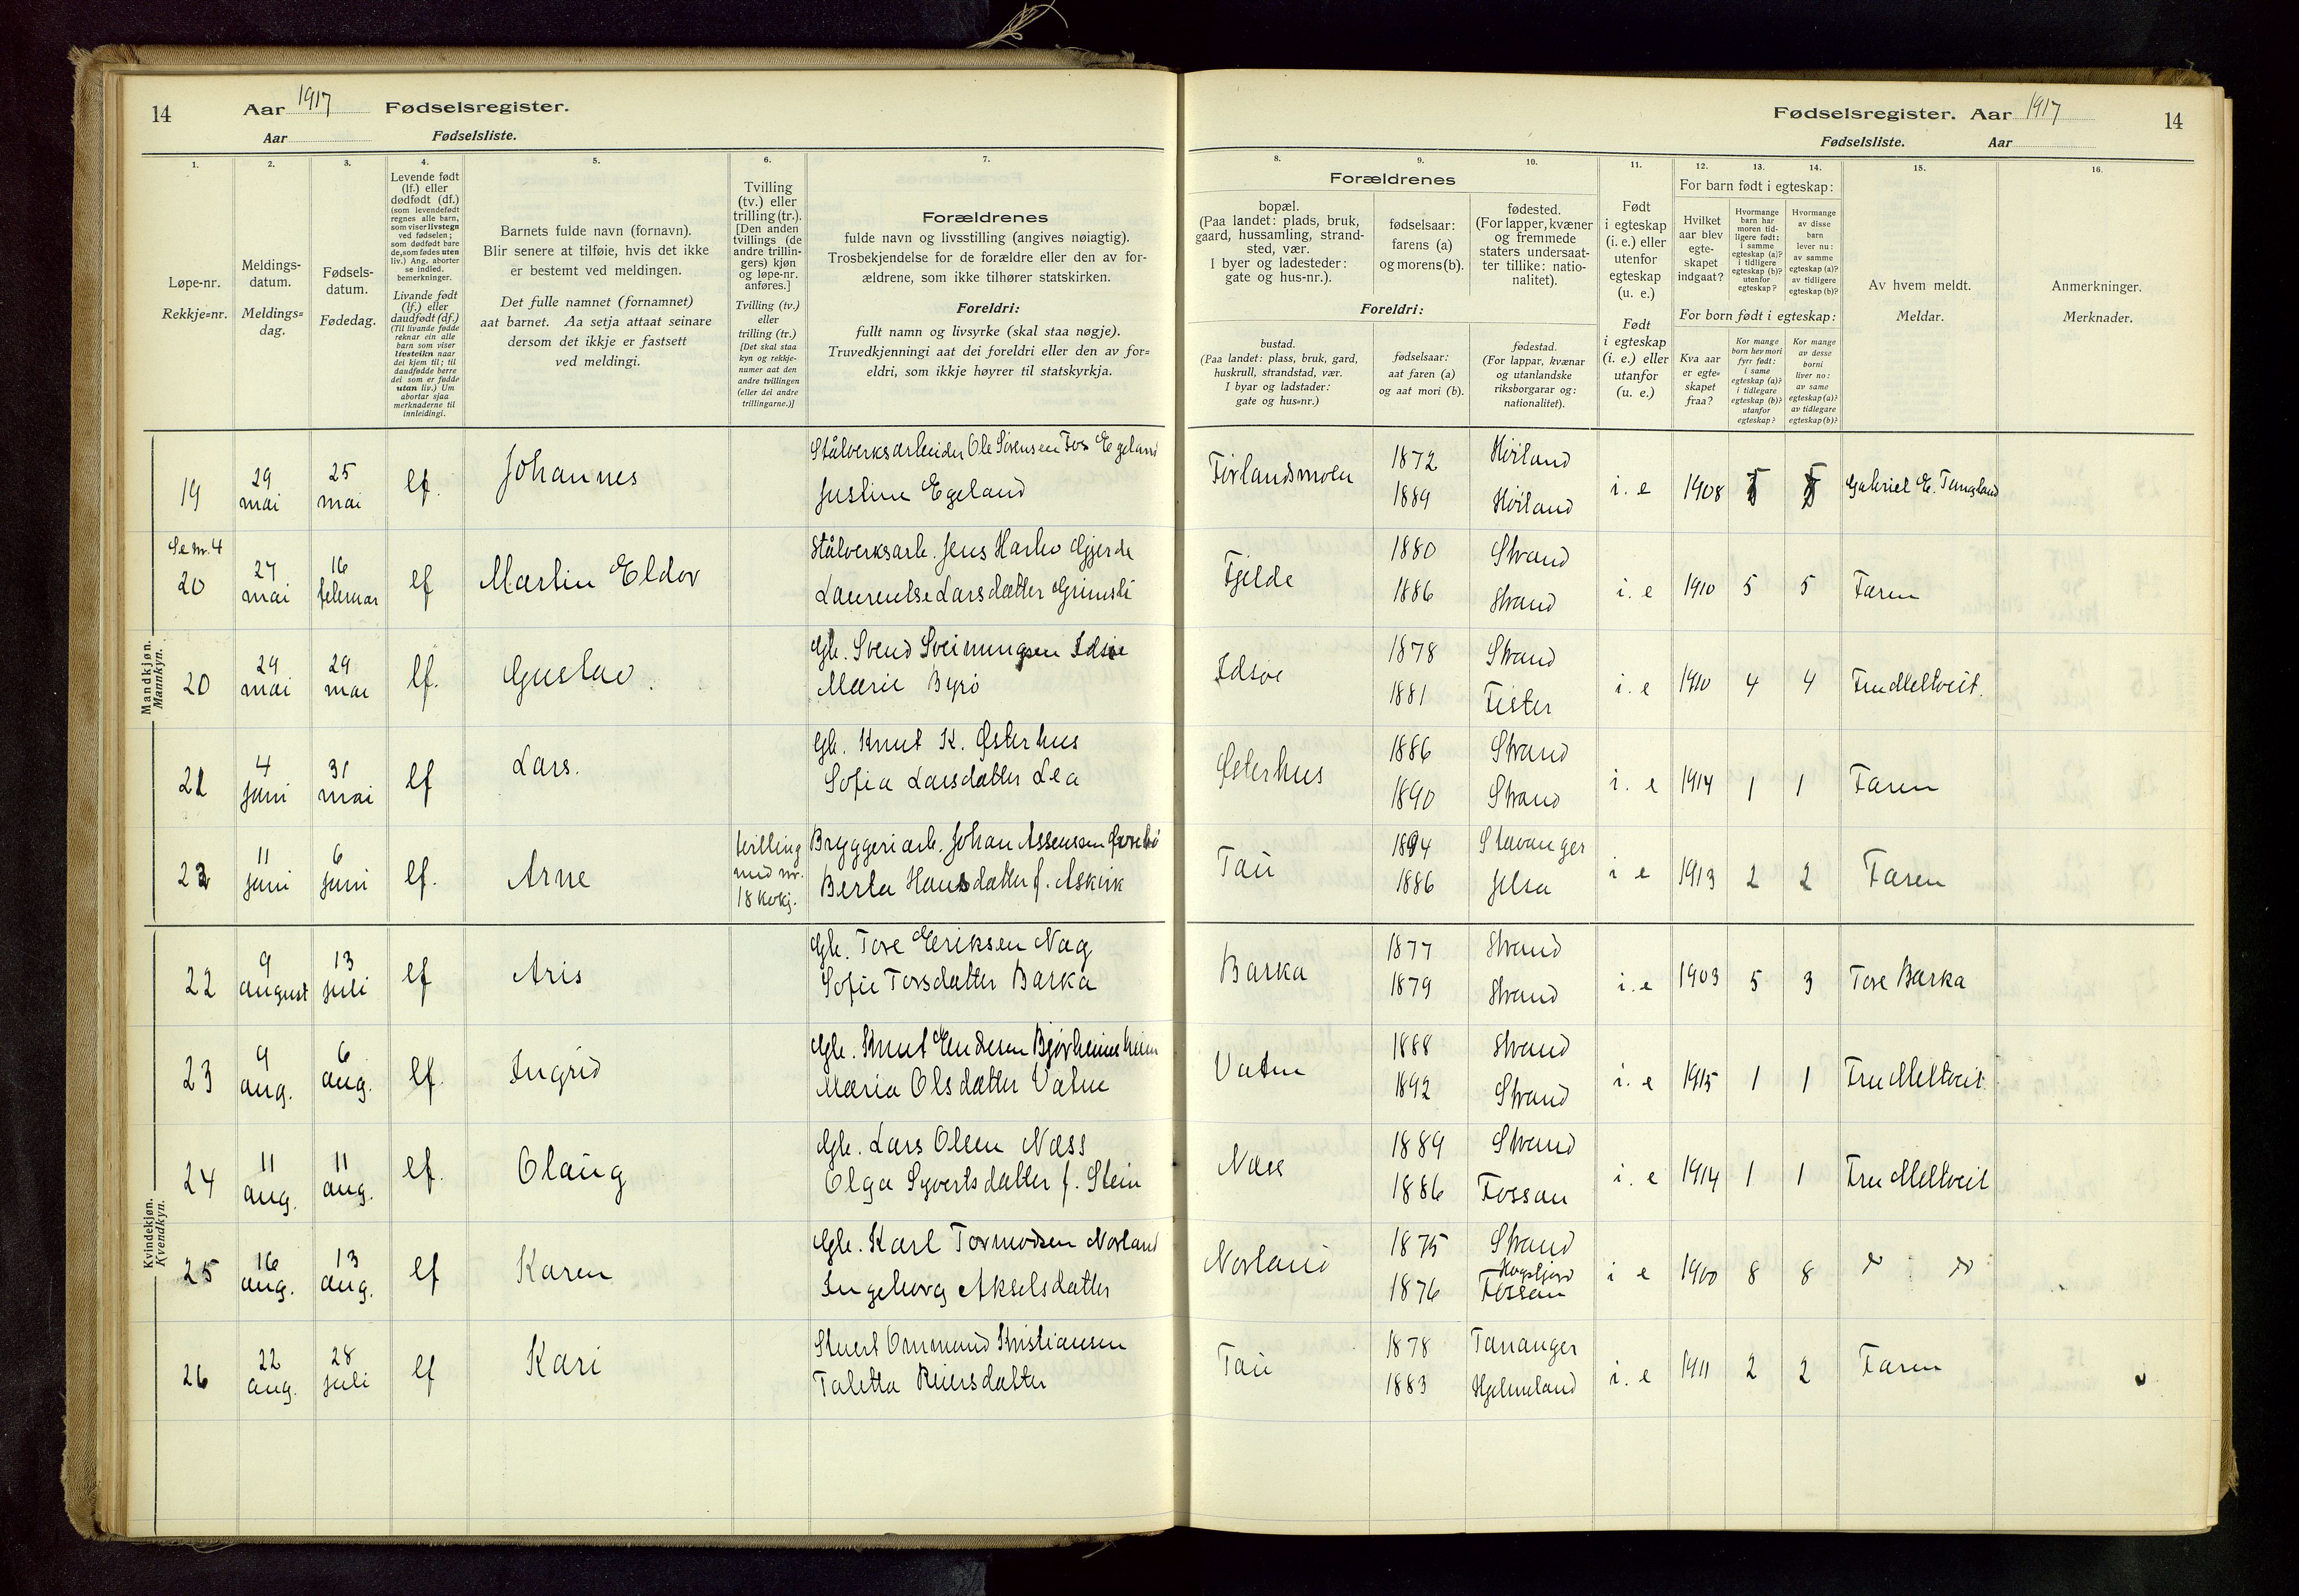 14 Aar 1917 Fødselsregister.
Aar Fødselsliste.
Fødselsregister. Aar 1917 14
Fødselsliste. Aar
1. 2. 3. 4. 5. 6. 7.
8. 9. 10. 11. 12. 13. 14. 15. 16.
Løpe-nr.
Rekkje=nr.
Meldings-
datum.
Meldings=
dag.
Fødsels-
datum.
Fødedag.
Levende født
(lf.) eller
dødfødt (df.)
(som levendefødt
regnes alle barn,
som viser livstegn
ved fødselen;
som dødfødt bare
de, som fødes uten
liv.) Ang. aborter
se indled.
bemerkninger.
Livande født
(lf.) eller
daudfødt (df.)
(Til livande fødde
reknar ein alle
barn som viser
livsteikn naar
dei kjem til; til
daudfødde berre
dei som er fødde
utan liv.) Um
abortar sjaa
merknaderne til
innleidingi.
Barnets fulde navn (fornavn).
Blir senere at tilføie, hvis det ikke
er bestemt ved meldingen.
Det fulle namnet (fornamnet)
aat barnet. Aa setja attaat seinare
dersom det ikkje er fastsett
ved meldingi.
Tvilling
(tv.) eller
trilling (tr.).
[Den anden
tvillings (de
andre trillin-
gers) kjøn
og løpe-nr.
anføres.]
Tvilling (tv.)
eller
trilling (tr.)
[Det skal staa
kyn og rekkje-
numer aat den
andre tvillingen
(eller dei andre
trillingarne.)]
Forældrenes
fulde navn og livsstilling (angives nøiagtig).
Trosbekjendelse for de forældre eller den av for-
ældrene, som ikke tilhører statskirken.
Foreldri:
fullt namn og livsyrke (skal staa nøgje).
Truvedkjenningi aat dei foreldri eller den av for=
eldri, som ikkje høyrer til statskyrkja.
Forældrenes
bopæl.
(Paa landet: plads, bruk,
gaard, hussamling, strand-
sted, vær.
I byer og ladesteder:
gate og hus-nr.).
fødselsaar:
farens (a)
og morens (b).
fødested.
(For lapper, kvæner
og fremmede
staters undersaat-
ter tillike: natio-
nalitet).
Foreldri:
bustad.
(Paa landet: plass, bruk, gard,
huskrull, strandstad, vær.
I byar og ladstader:
gate og hus=nr.)
fødselsaar:
aat faren (a)
og aat mori (b).
fødestad.
(For lappar, kvænar
og utanlandske
riksborgarar og:
nationalitet).
Født
i egteskap
(i. e.) eller
utenfor
egteskap
(u. e.)
Født
i egteskap
(i. e.) eller
utanfor
(u. e.)
For barn født i egteskap:
Hvilket
aar blev
egte-
skapet
indgaat?
Hvormange
barn har
moren tid-
ligere født:
i samme
egteskap (a)?
i tidligere
egteskap (b)?
utenfor
egteskap?
Hvormange
av disse
barn
lever nu:
av samme
egteskap (a)?
av tidligere
egteskap (b)?
For born født i egteskap:
Kva aar
er egte=
skapet
fraa?
Kor mange
born hev mori
fyrr født:
i same
egteskap (a)?
i tidlegare
egteskap (b)?
utanfor
egteskap?
Kor mange
av desse
borni
liver no:
av same
egteskap (a)?
av tidlegare
egteskap (b)?
Av hvem meldt.
Meldar.
Anmerkninger.
Merknader.
Mandkjøn.
Mannkyn.
19 29 mai 25 mai lf. Johannes
Stålverksarbeider Ole Sørensen Fos Egeland
Justine Egeland
Førlandsmoen 1872 Høiland
1889 Høiland
i. e 1908 Gabriel E. Tungland
Se nr. 4
20 27 mai 16 februar lf Martin Eldor
Stålverksarb. Jens Gjerde
Laurentse Larsdatter
Fjelde 1880 Strand
1886 Strand
i. e 1910 5 5 Faren
20 29 mai 29 mai lf. Gustav.
Gb. Svend Sveinungsen Idsøe
Marie Byrø
Idsøe 1878 Strand
1881 Fister
i. e 1910 4 4 Fru Meltveit.
21 4 juni 31 mai lf Lars.
Gb. Knut K. Østerhus
Sofia Larsdatter Lea
Østerhus 1886 Strand
1890 Strand
i. e 1914 1 1 Faren
22 11 juni 6 juni lf. Arne
tvilling
med nr.
18 kvkj.
Bryggeriarb. Johan Assensen
Berta Hansdatter f. Askvik
Tau 1894 Stavanger
1886 Jelsa
i e 1913 2 2 Faren
Kvindekjøn.
Kvendkyn.
22 9 august 13 juli lf Aris
Gb. Tore Eriksen Nag
Sofie Torsdatter Barka
Barka 1877 Strand
1879 Strand
i. e 1903 5 3 Tore Barka
23 9 aug. 6 aug. lf. Ingrid
Gb. Knut Endresen Bjørheimsheien
Maria Olsdatter Vatne
Vatne 1888 Strand
1892 Strand
i. e 1915 1 1 Fru Meltveit
24 11 aug. 11 aug. lf. Olaug
Gb. Lars Olsen Næss
Olga Syvertsdatter f. Stein
Næss 1889 Strand
1886 Fossan
i. e 1914 1 1 Fru Meltveit
25 16 aug. 13 aug. lf Karen
Gb. Karl Tormodsen Norland
Ingeborg Akselsdatter
Norland 1875 Strand
Høgsfjord
1876 Fossan
i e 1900 8 8 " "
26 22 aug. 28 juli lf Kari
Stuert Ommund Kristiansen
Taletta Reiersdatter
Tau 1878 Tananger
1883 Hjelmeland
i. e 1911 2 2 Faren